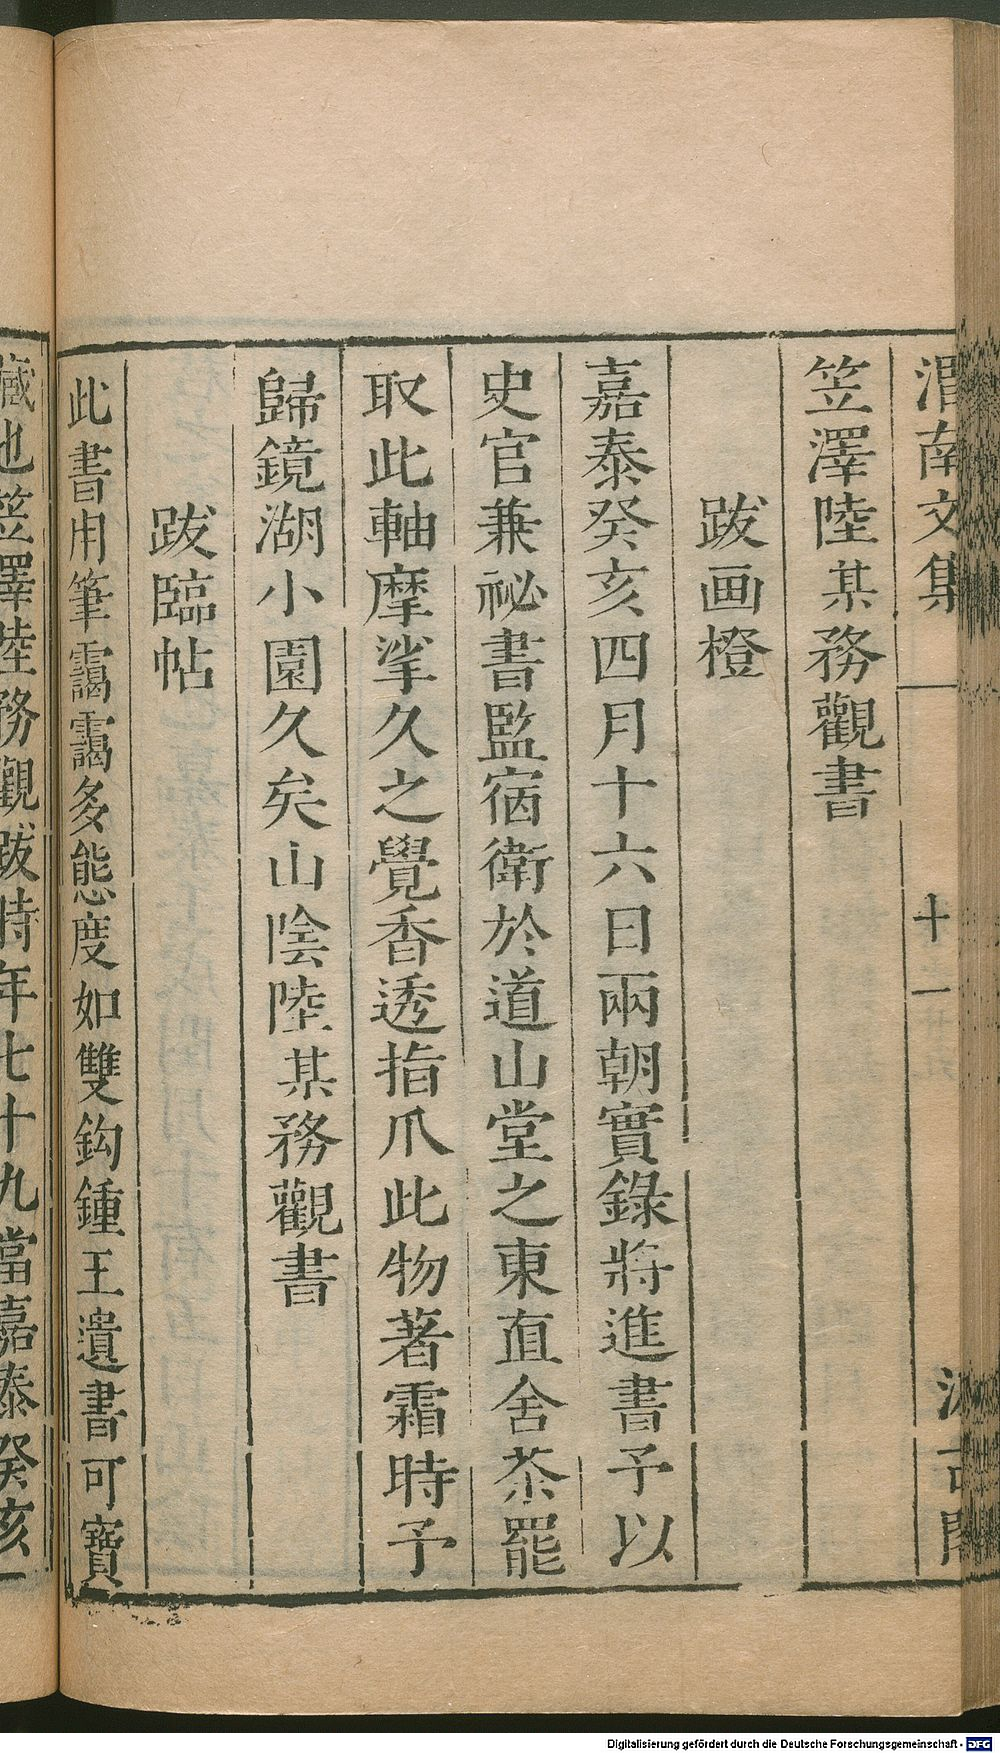 渭南文集
十一
笠澤陸某務觀書
跋画橙
嘉泰癸亥四月十六日兩朝實錄將進書予以
史官兼祕書監宿衛於道山堂之東直舍茶罷
取此軸摩挲久之覺香透指爪此物著霜時予
歸鏡湖小園久矣山陰陸某務觀書
跋臨帖
此書用筆靄靄多態度如雙鈎鍾王遺書可寶
藏也笠澤陸務觀跋時年七十九當嘉泰癸亥
Digitalisierung gefördert durch die Deutsche Forschungsgemeinschaft - DFG